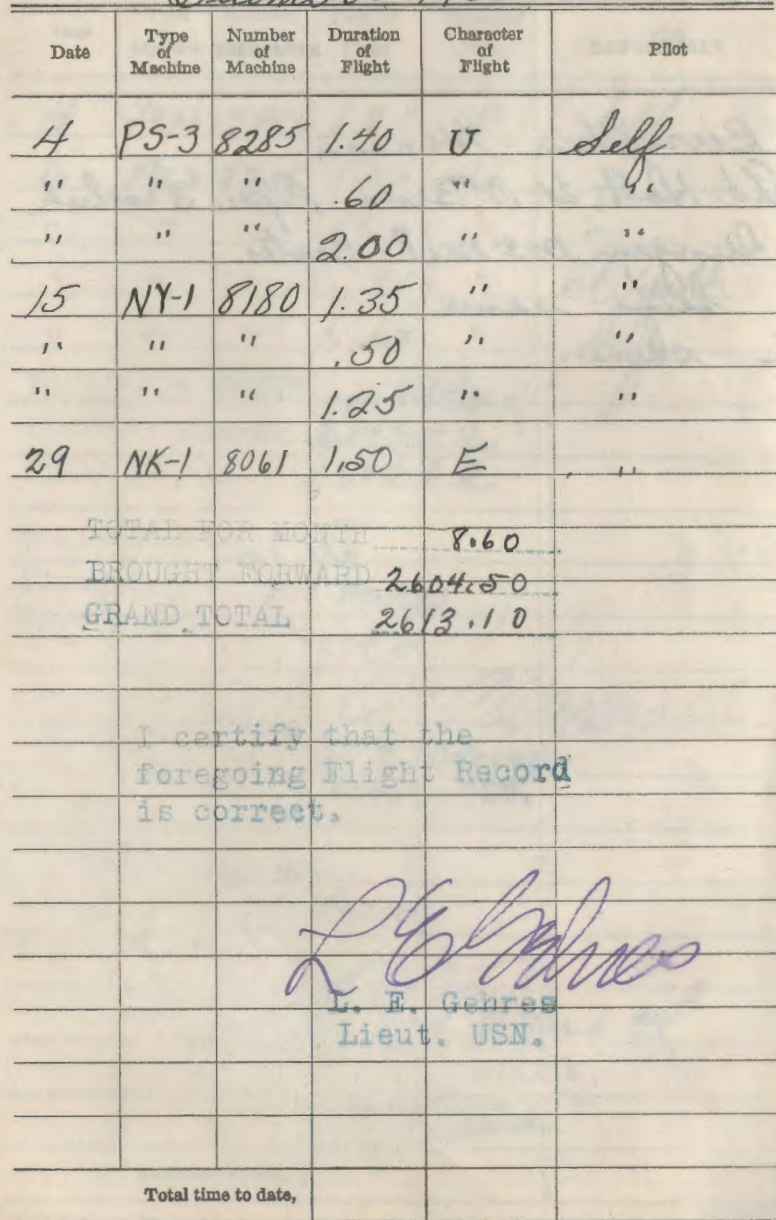 Date Type of Machine Number of Machine Duration of Flight Character of Flight Pilot
4 PS-3 8285 1.40 U Self
" " " .60 " "
" " " 2.00 " "
15 NY-1 8180 1.35 " "
" " " .50 " "
" " " 1.25 " "
29 NK-1 8061 1.50 E "
TOTAL FOR MONTH 8.60
BROUGHT FORWARD 2604.50
GRAND TOTAL 2613.10
I certify that the
foregoing Flight Record
is correct.
L E Gehres
L. E. Gehres
Lieut. USN.
Total time to date,